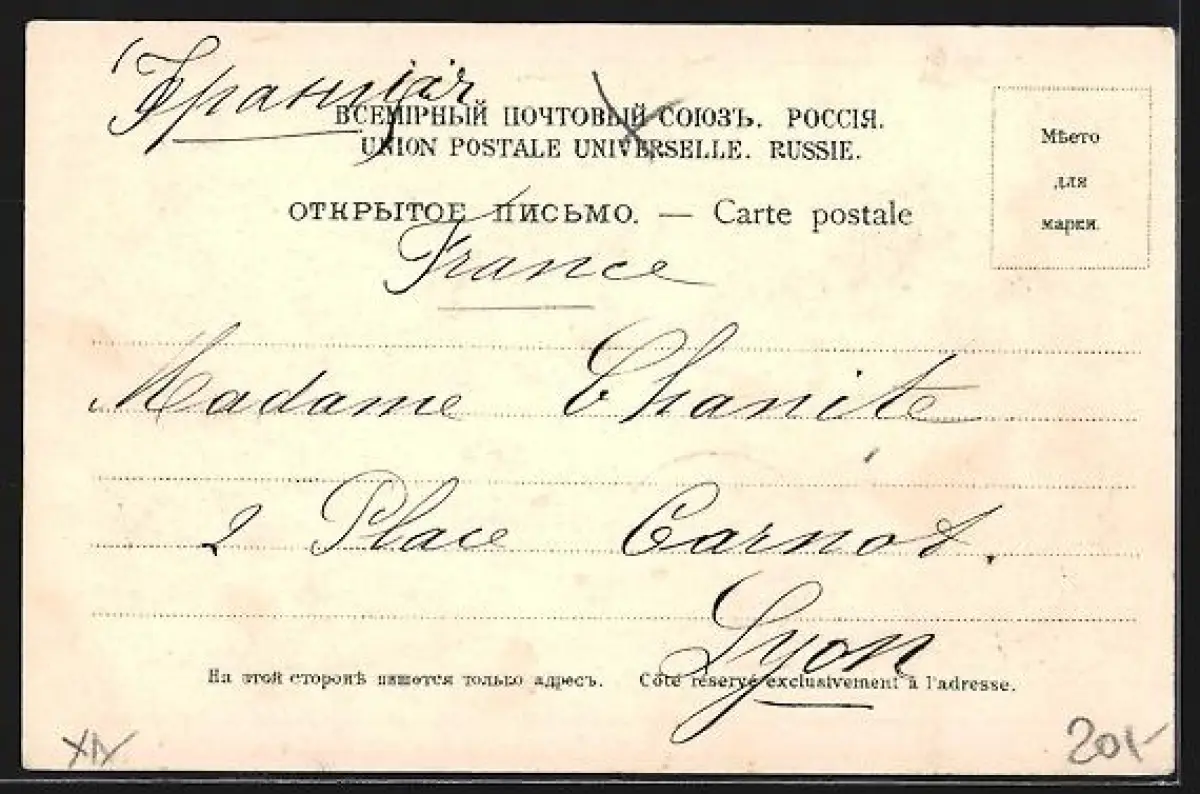 Франція
ВСЕМІРНЫЙ ПОЧТОВЫЙ СОЮЗЪ. РОССІЯ.
UNION POSTALE UNIVERSELLE. RUSSIE.
ОТКРЫТОЕ ПИСЬМО. — Carte postale
Мѣсто
для
марки.
France
Madame Chanite
2 Place Carnot.
Lyon
На этой сторонѣ пишется только адресъ. Côté réservé exclusivement à l'adresse.
201-